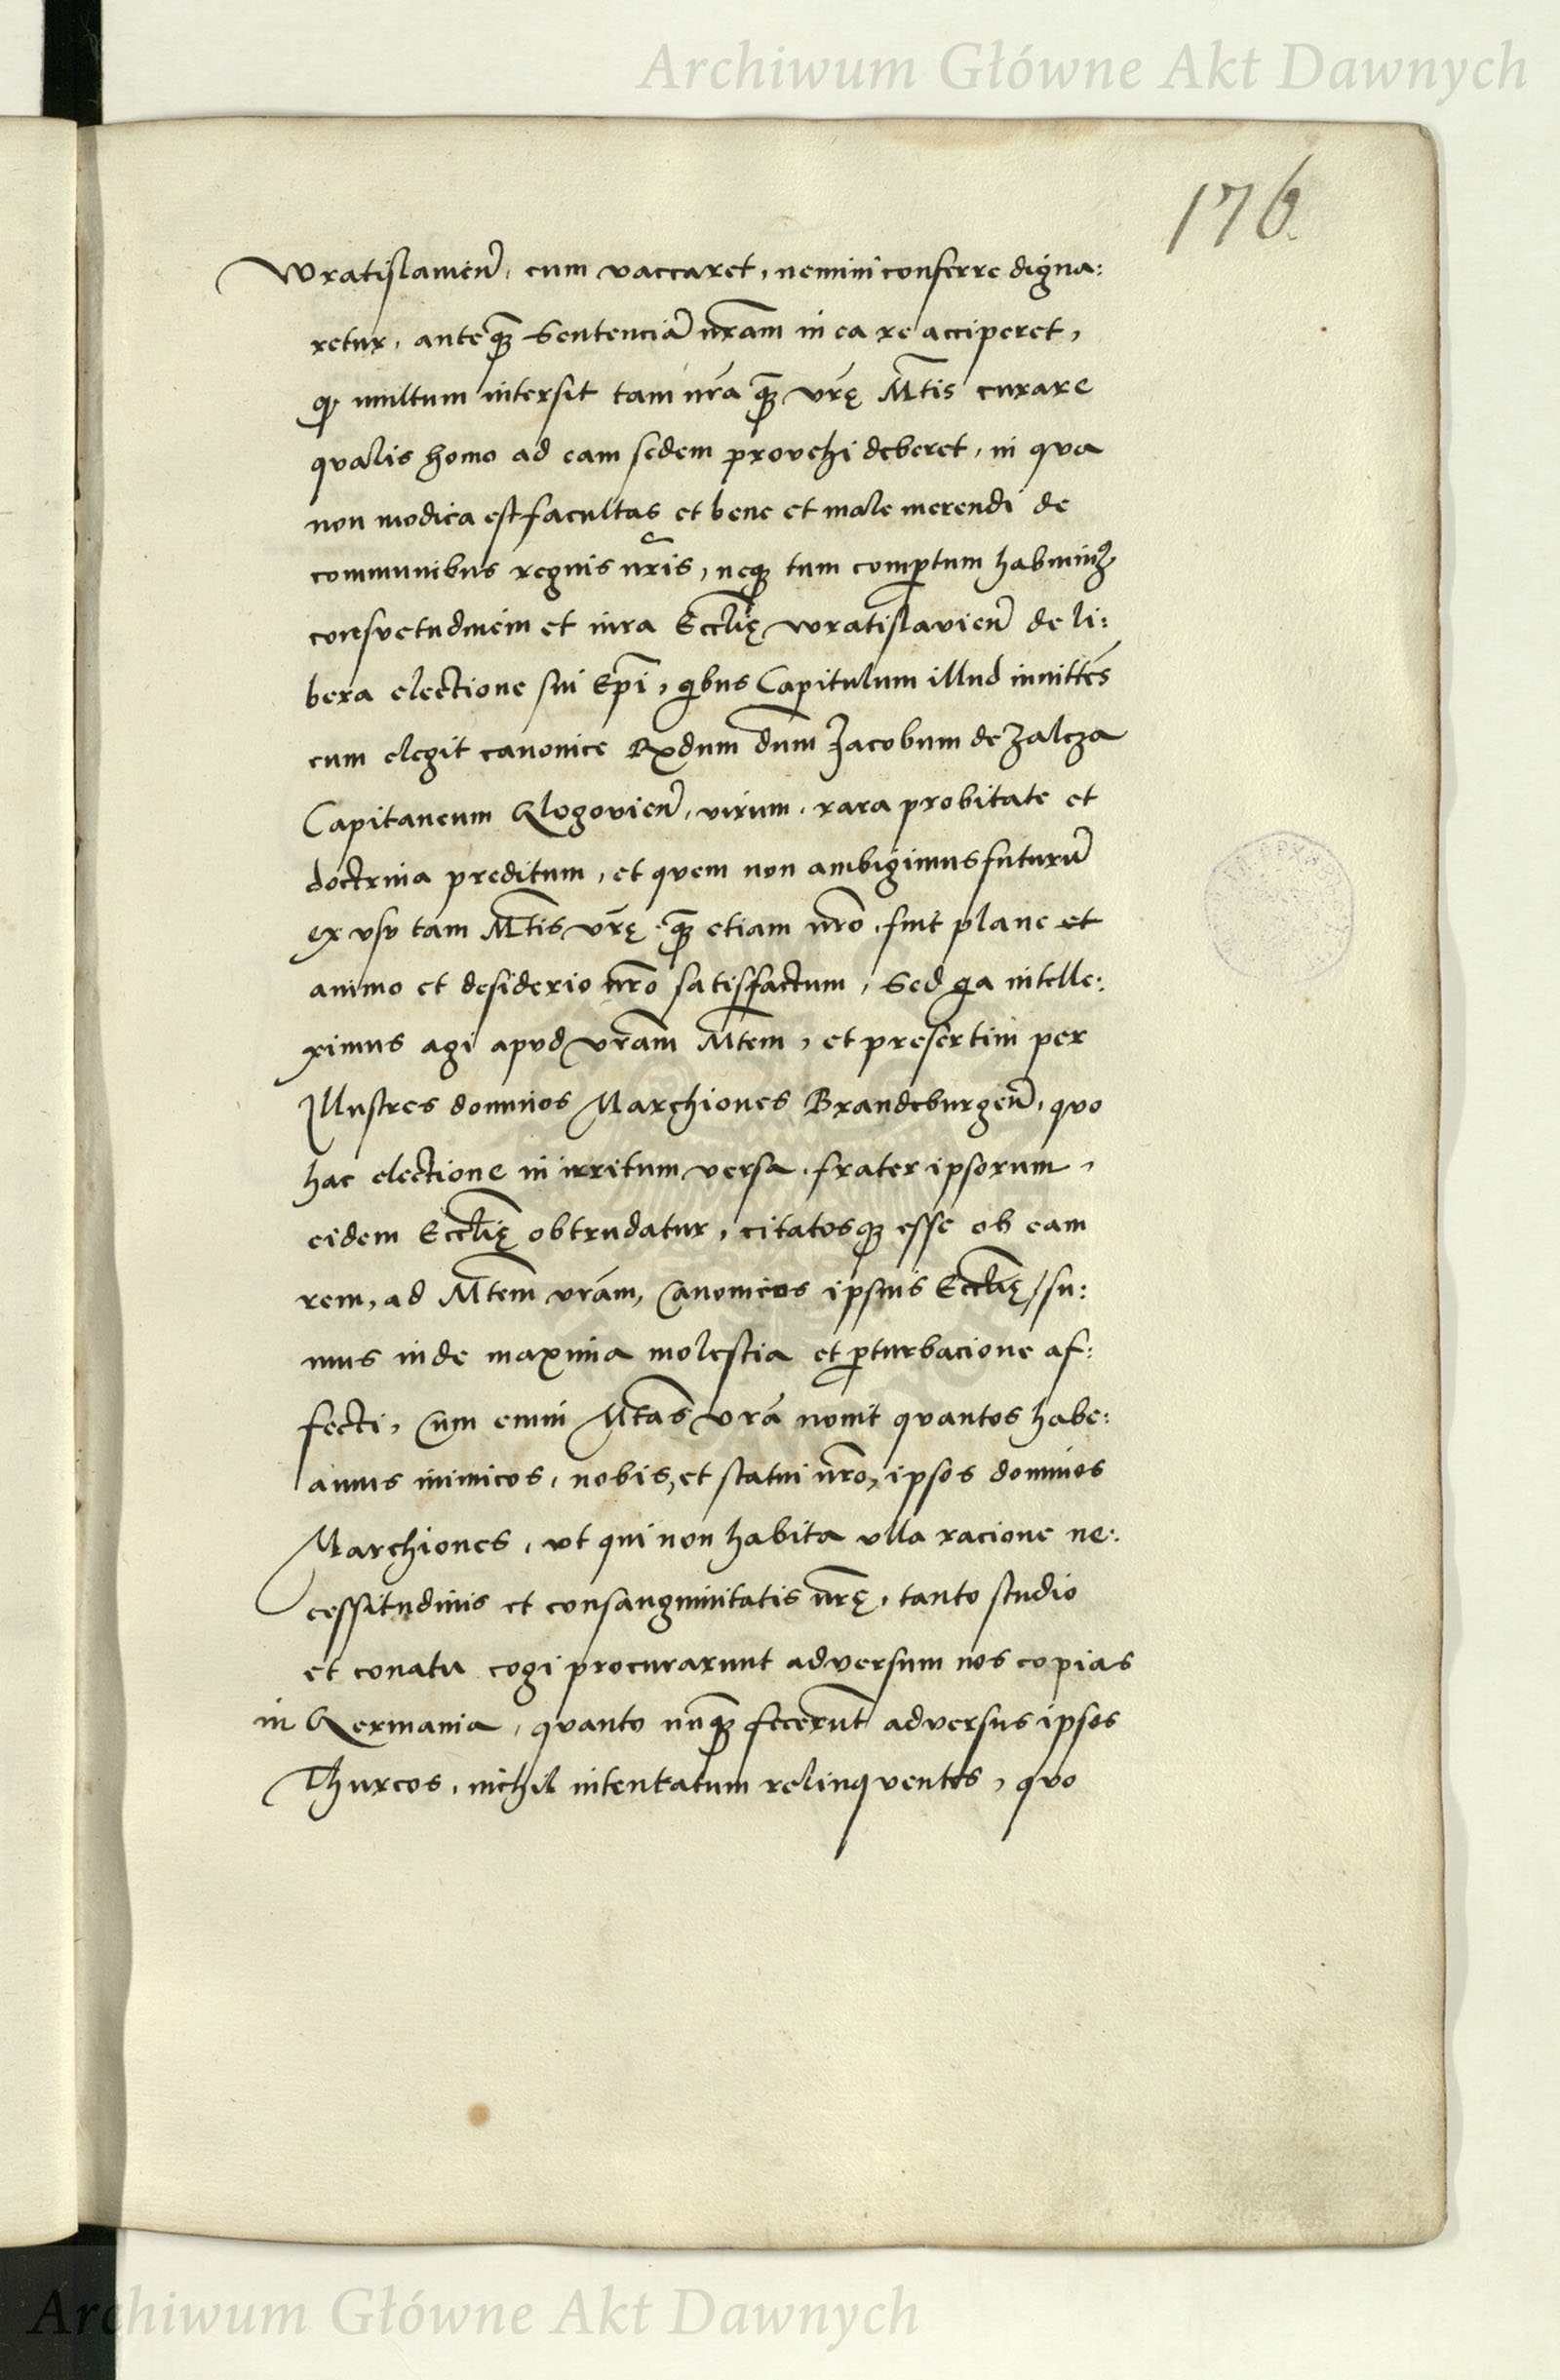 Archiwum Główne Akt Dawnych
176
Wratislauieñ, cum vaccaret, nemini conferre digna:
retur, anteq̃ʒ Sentenciã nr̃am in ea re acciperet,
qʒ multum intersit tam nr̃a q̃ʒ vr̃ę Mt̃is curare
qvalis homo ad eam sedem provehi deberet, in qva
non modica est facultas et bene et male merendi de
communibus regnis nr̃is, neqʒ tum compertum habuimꝰ
consvetudinem et iura Eccl̃ię wratislavieñ de li:
bera electione sui Ep̃i, qibus Capitulum illud innittẽs
cum elegit canonice Rx̃dum dñm Jacobum de Zalcza
Capitaneum Glogovieñ, virum, rara probitate et
doctrina preditum, et qvem non ambigimus futurũ
ex vsv tam Mt̃is vr̃ę q̃ʒ etiam nr̃o, fuit plane et
animo et desiderio nr̃o satisfactum, Sed qia intelle:
ximus agi apvd vr̃am Mt̃em, et presertim per
Illustres dominos Marchiones Brandeburgeñ, qvo
hac electione in irritum versa, frater ipsorum,
eidem Eccl̃ię obtrudatur, citatosqʒ esse ob eam
rem, ad Mt̃em vr̃am, Canonicos ipsius Eccl̃ię, su:
mus inde maxima molestia et perturbacione af:
fecti, Cum enim Mt̃as vr̃a novit qvantos habe:
amus inimicos, nobis, et statui nr̃o, ipsos dominos
Marchiones, vt qui non habita vlla racione ne:
cessitudinis et consangvinitatis nr̃ę, tanto studio
et conatu cogi procurarunt adversum nos copias
in Germania, qvanto nũq̃ʒ fecerũt adversus ipsos
Thurcos, nichil intentatum relinqventes, qvo
Archiwum Główne Akt Dawnych